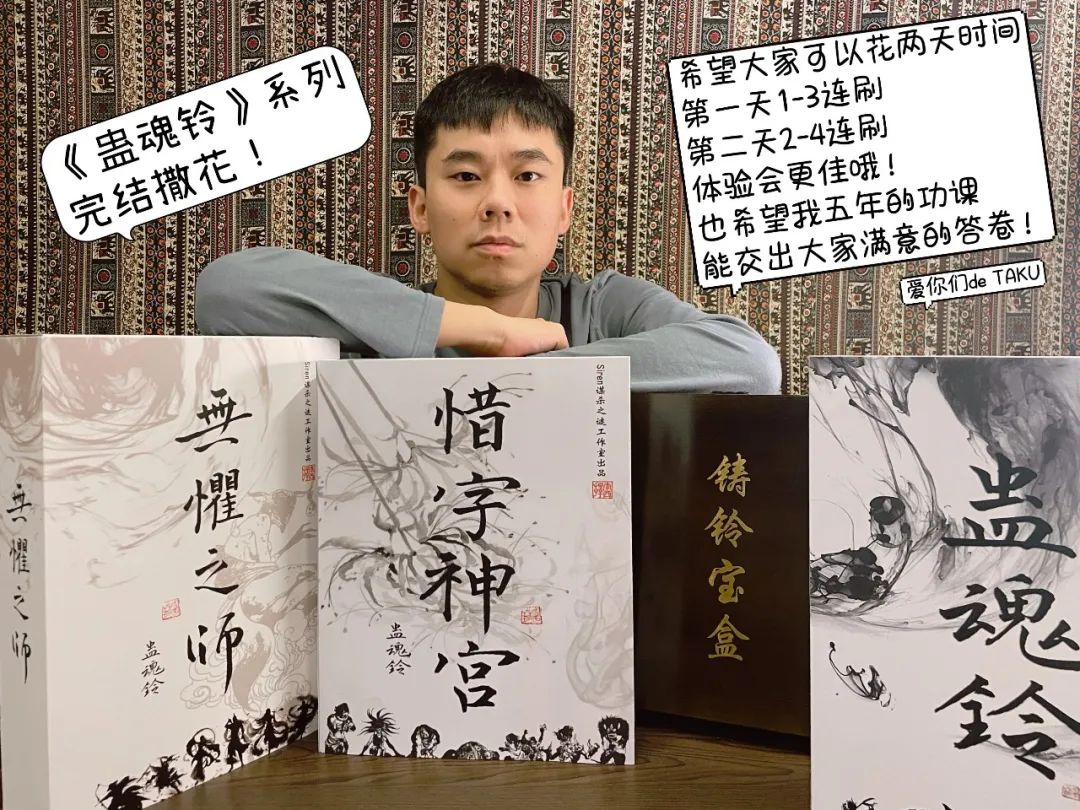 《蛊魂铃》系列
完结撒花！
希望大家可以花两天时间
第一天1-3连刷
第二天2-4连刷
体验会更佳哦！
也希望我五年的功课
能交出大家满意的答卷！
爱你们de TAKU
無懼之师
無懼之师
蛊魂铃
Siren谋杀之谜工作室出品
惜字神宫
蛊魂铃
Siren谋杀之谜工作室出品
铸铃宝盒
蛊魂铃